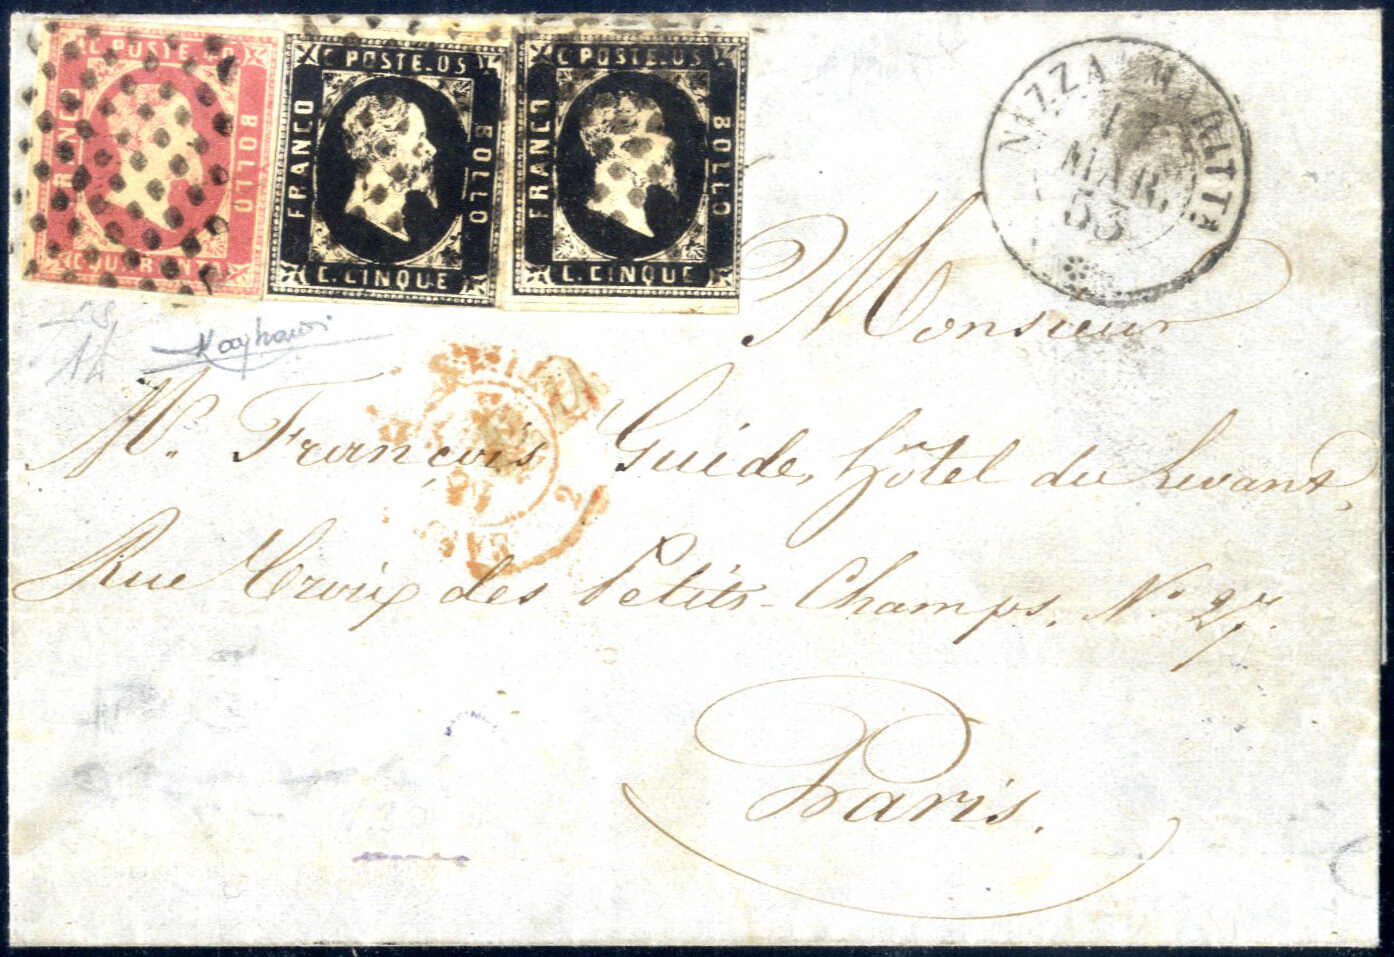 C POSTE. 40
FRANCO
BOLLO
C. QUARANTA
C POSTE. 05
FRANCO
BOLLO
C. CINQUE
C POSTE. 05
FRANCO
BOLLO
C. CINQUE
NIZZA MARITT.
1
MAR.
53
Monsieur
Mr. François Guide, hôtel du Levant,
Rue Croix des Petits-Champs. No. 27.
Paris.